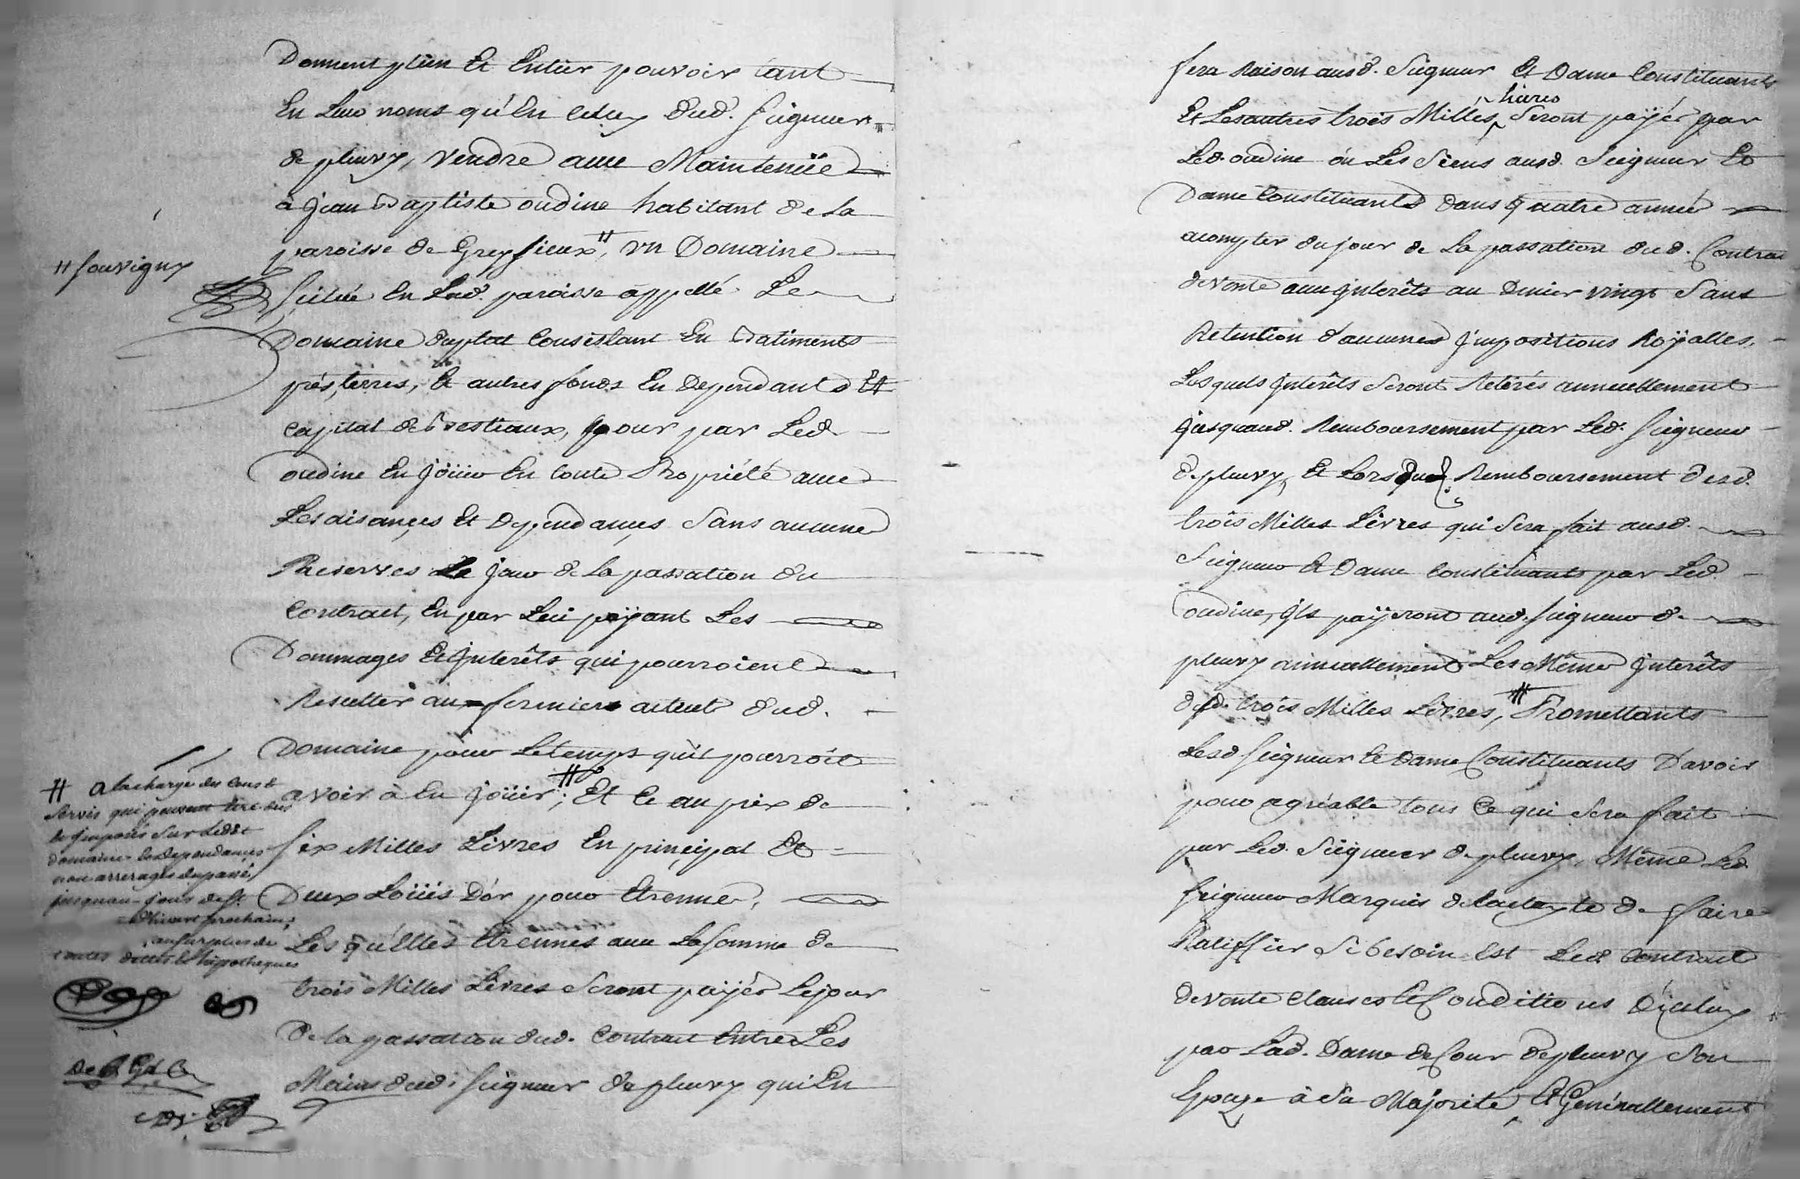 Donnent plein Et Entier pouvoir tant
En Leur noms qu'En celuy dud. Seigneur
de pleuvy, vendre avec Maintenüe
à jean Baptiste oudine habitant de La
paroisse de Greyfieux #, vn Domaine
# Souvigny
scitué En Lad. paroisse appellé Le
Domaine duplat Consistant En Batiments
prés, terres, Et autres fonds En Dependants Et
Capital de Bestiaux, pour par Led.
oudine En joüir En toute Propriété avec
Les aisançes Et Dependançes Sans aucune
Reserves Le jour de La passation du
Contract, En par Luy payant Les
Dommages Et jnterêts qui pourroient
Resulter au fermier actuel dud.
Domaine pour Letemps qu'il pourroit
avoir à En joüir; # Et Ce au prix de
Six Milles Livres En principal Et
Deux Loüis D'or pour Etrenne,
Lesquelles Etrennes avec La somme de
trois Milles Livres Seront payés Lejour
De la passation dud. Contract Entre Les
Mains dud. Seigneur de pleuvy qui En
# a lacharge des Cens &
Servis qui peuvent être dus
& jmposés Sur Ledit
domaine & dependançes
non arrerages dupassé,
jusquau jour de St.
vivant prochain;
ausurplus de
toutes dettes & hipotheques
fera Raison ausd. Seigneur Et Dame Constituants
Et Les autres trois Milles livres Seront payés par
Led. oudine où Les Siens ausd. Seigneur Et
Dame Constituants dans quatre année
acompter dujour de La passation dud. Contrat
de vente avec jnterêts au Denier vingt Sans
Retention d'aucunes jmpositions Royalles,
Lesquels jnterêts Seront Retirés annuellement
jusquaud. Remboursement par Led. Seigneur
de pleuvy, Et Lors du Remboursement desd.
trois Milles Livres qui Sera fait ausd.
Seigneur Et Dame Constituants par Led.
oudine, jls payeront aud. Seigneur de
pleuvy annuellement Les Même jnterêts
desd. trois Milles Livres, # Promettants
Lesd Seigneur Et Dame Constituants D'avoir
pour agréable tous Ce qui Sera fait
par Led. Seigneur de pleuvy, Même Led.
Seigneur Marquis de de faire
Ratiffier Si besoin Est Led. Contract
de vente Clauses Et Conditions D'iceluy
par Lad. Dame de Cour de pleuvy Son
Epouze à Sa Majorité, Et Generallement